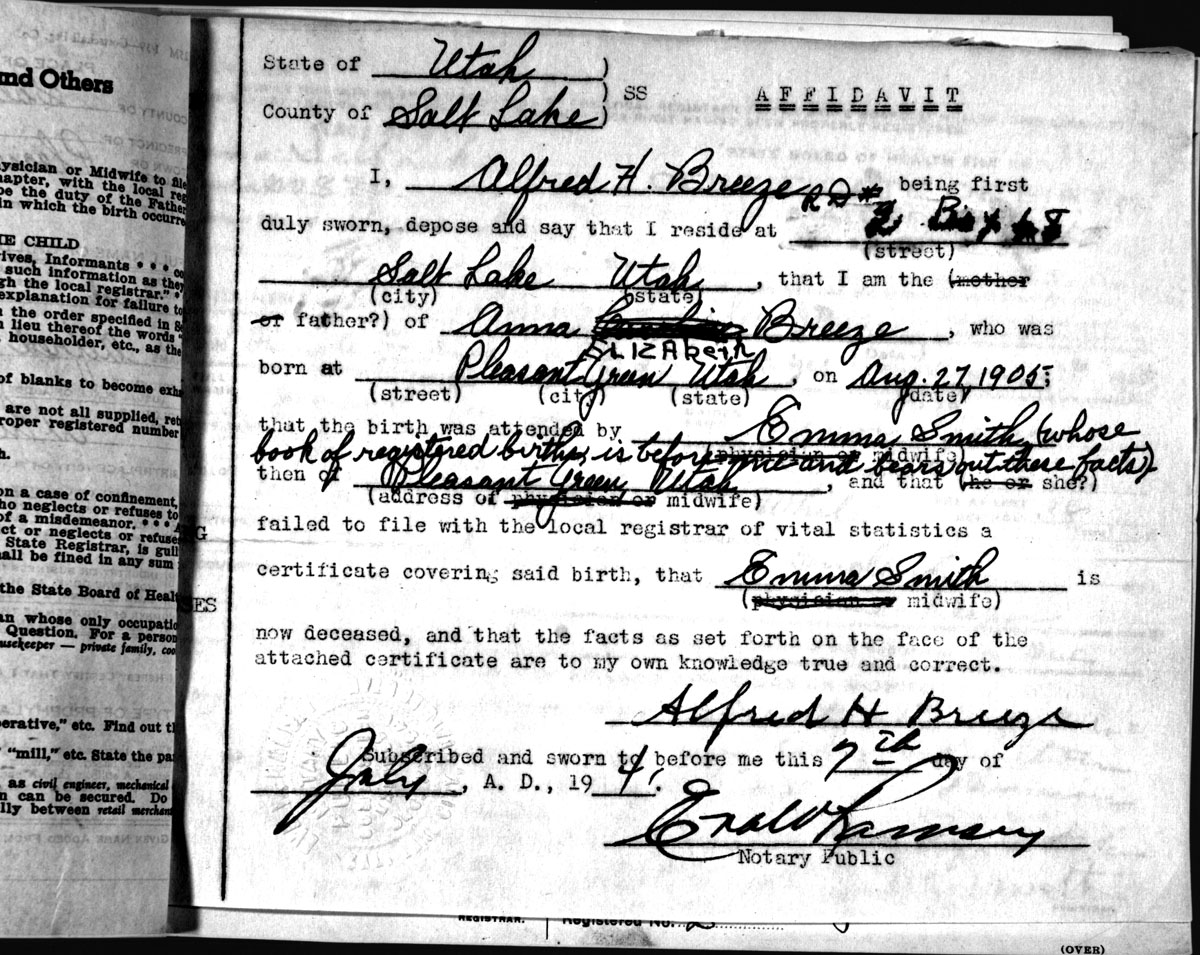 nd Others
ysician or Midwife to file
hapter, with the local reg
be the duty of the Father
in which the birth occurre
HE CHILD
rives, Informants * * * co
such information as they
gh the local registrar." *
explanation for failure to
n the order specified in S
n lieu thereof the words "
householder, etc., as the
of blanks to become exh
are not all supplied, ret
roper registered number
h.
on a case of confinement,
ho neglects or refuses to
of a misdemeanor. * * * A
ct or neglects or refuses
State Registrar, is guil
all be fined in any sum
the State Board of Heal
an whose only occupatio
Question. For a person
usekeeper — private family, coo
perative," etc. Find out th
"mill," etc. State the pa
as civil engineer, mechanical
n can be secured. Do
lly between retail merchan
NG
SES
State of Utah )
) SS AFFIDAVIT
County of Salt Lake )
I, Alfred H. Breeze being first
RD#
duly sworn, depose and say that I reside at 2 Box
(street)
Salt Lake Utah, that I am the (mother
(city) (state)
or father?) of Anna Breeze, who was
ELIZAbeth
born at Pleasant Green Utah, on Aug. 27 1905;
(street) (city) (state) (date)
that the birth was attended by Emma Smith (whose
book of registered births, is before me and bears out these facts)
(physician or midwife)
then of Pleasant Green Utah, and that (he or she?)
(address of physician or midwife)
failed to file with the local registrar of vital statistics a
certificate covering said birth, that Emma Smith is
(physician or midwife)
now deceased, and that the facts as set forth on the face of the
attached certificate are to my own knowledge true and correct.
Alfred H Breeze
Subscribed and sworn to before me this 7th day of
July, A. D., 1941.
Notary Public
REGISTRAR. Registered No. 2
(OVER)